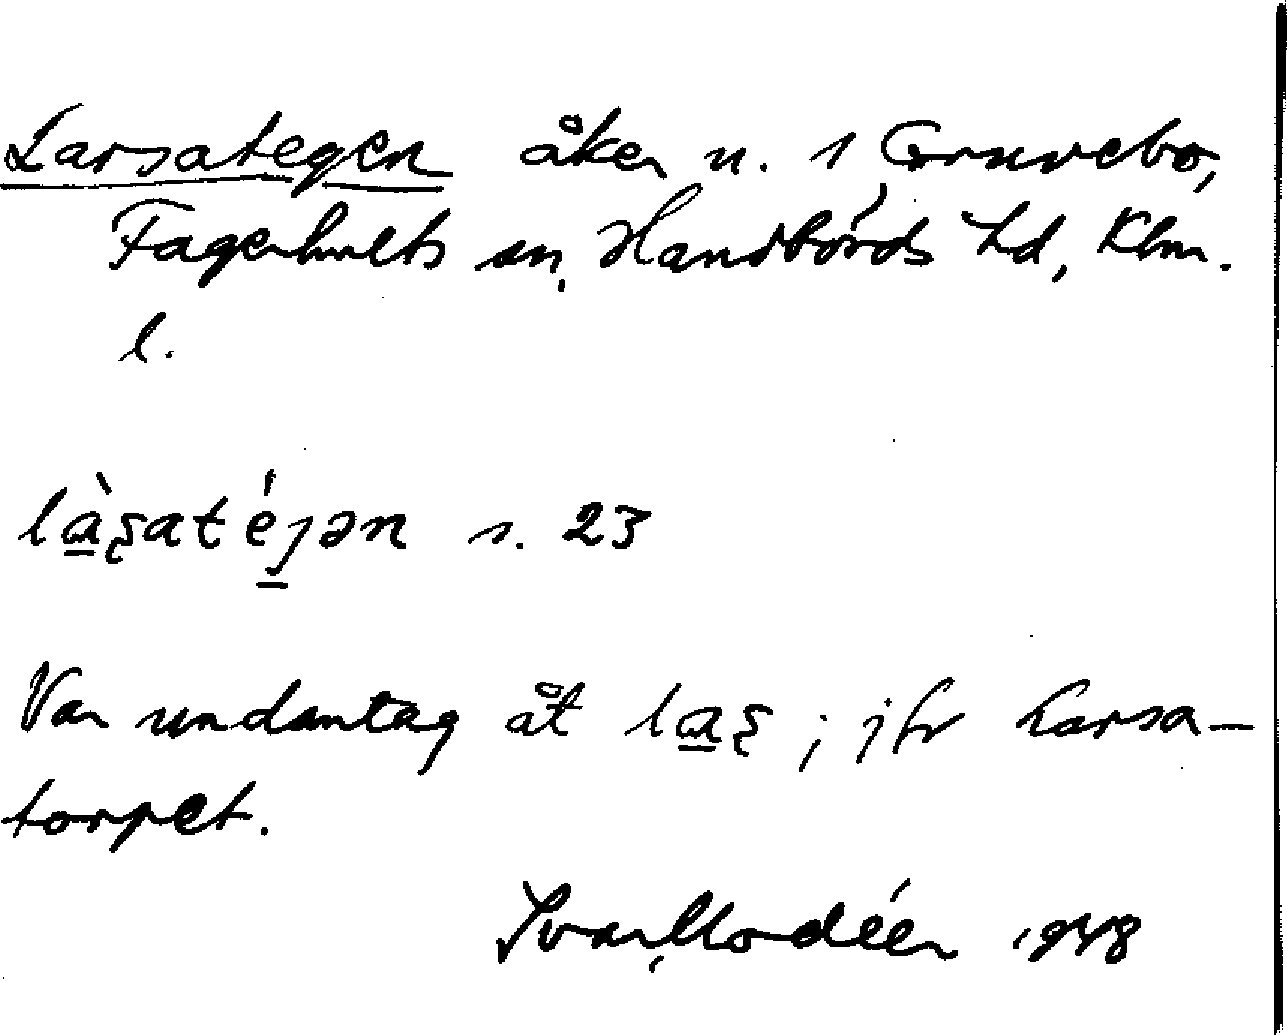 Larsategen åker n. 1 Gruvebo,
Fagerhults sn, Handbörds hd, Klm.
l.
là̱ʂaté̱ɟən s. 23
Var undantag åt la̱ʂ ; jfr Larsa-
torpet.
Ivar Modéer 1948